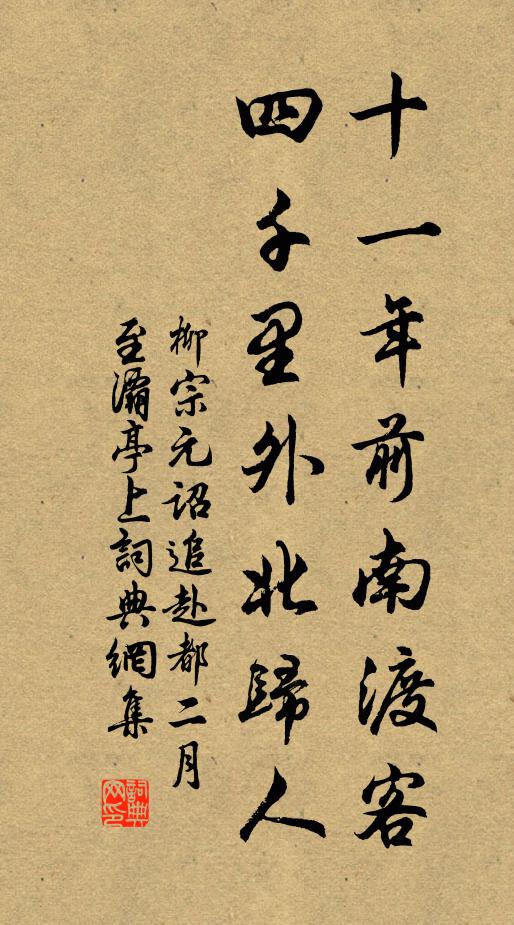 十一年前南渡客
四千里外北歸人
柳宗元詔追赴都二月
至灞亭上詞典網集
詞典网印